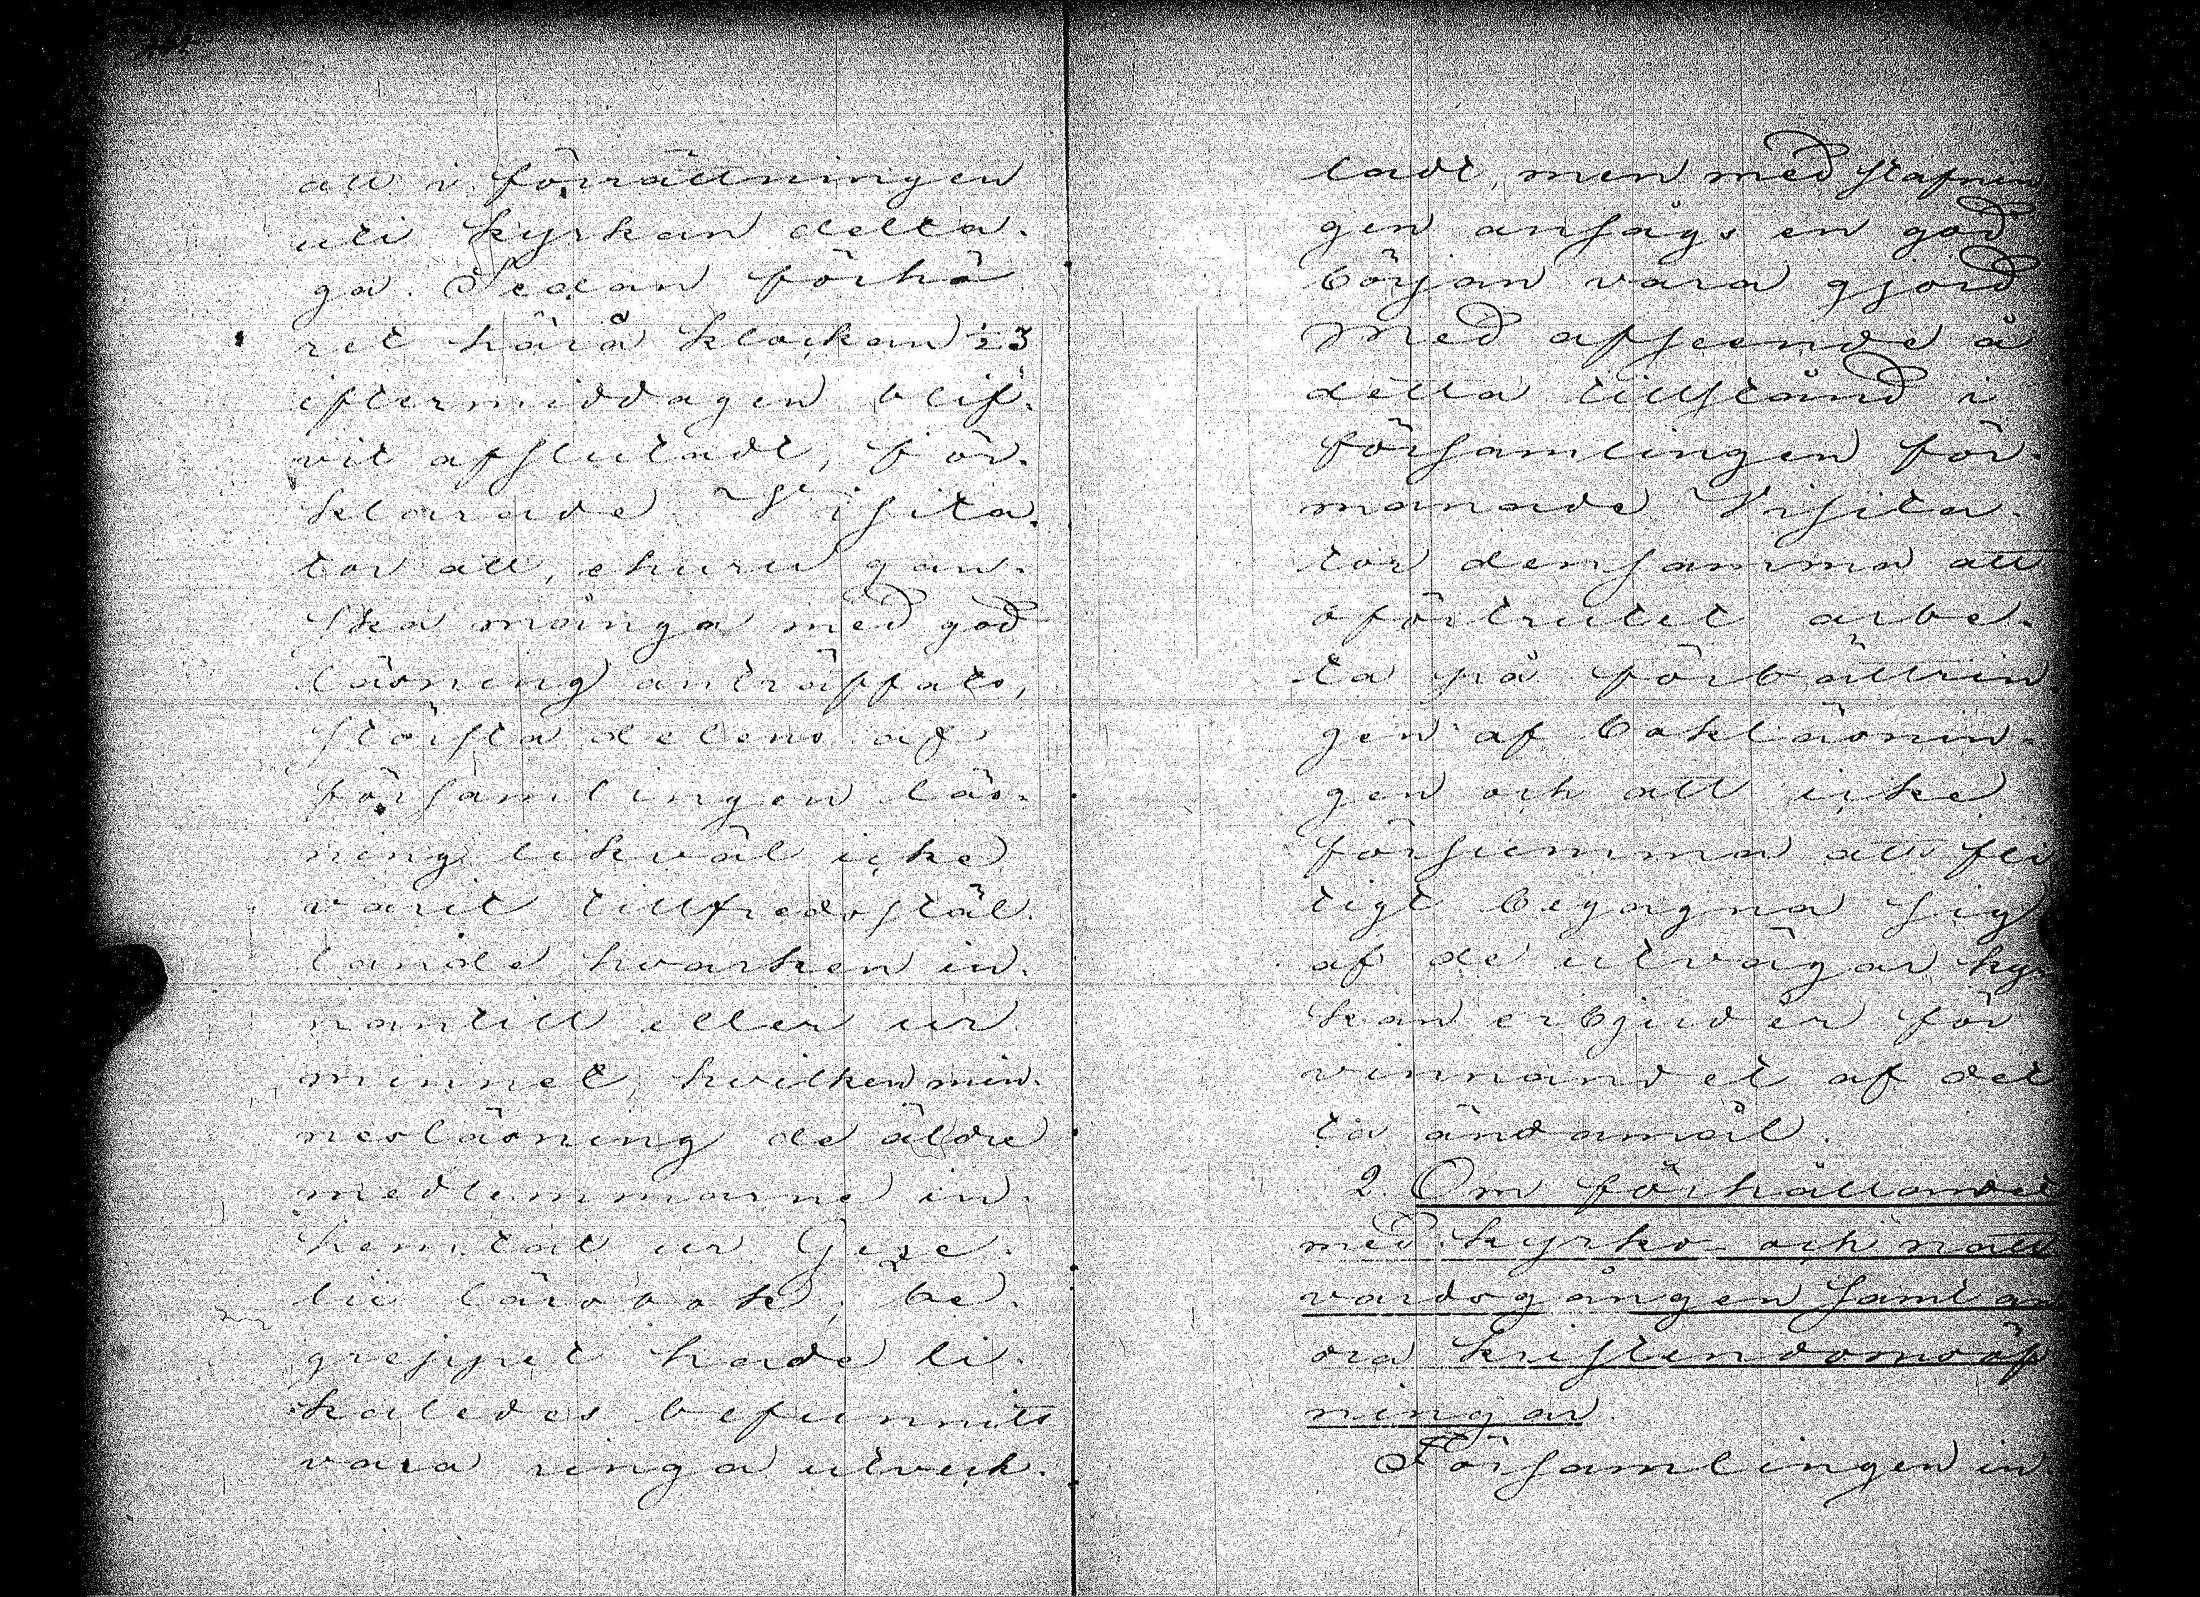 att i förrättningen
uti kyrkan delta-
ga. Sedan förhö
ret härå klockan ½3
eftermiddagen blif-
vit afslutadt, för-
klarade Visita-
tor att, ehuru gan-
ska många med god
läsning anträffats,
största delens af
församlingen läs-
ning likväl icke
varit tillfredsstäl-
lande hvarken in-
nantill eller ur
minnet, hvilken min-
nesläsning de äldre
medlemmarne in-
hemtat ur Geze-
lii lärobok; be-
greppet hade li-
kaledes befunnits
vara ringa utveck-
ladt, men med stafnin
gen ansågs en god
början vara gjord
Med afseende å
detta tillstånd i
församlingen för-
manade Visita-
tor densamma att
oförtrutet arbe-
ta på förbättrin-
gen af bokläsnin-
gen och att icke
försumma att fli
tigt begagna sig
af de utvägar kyr
kan erbjuder för
vinnandet af det
ta ändamål.
2. Om förhållandet
med kyrko- och natt
vardsgången samt an
dra kristendomsöf
ningar.
Församlingen in